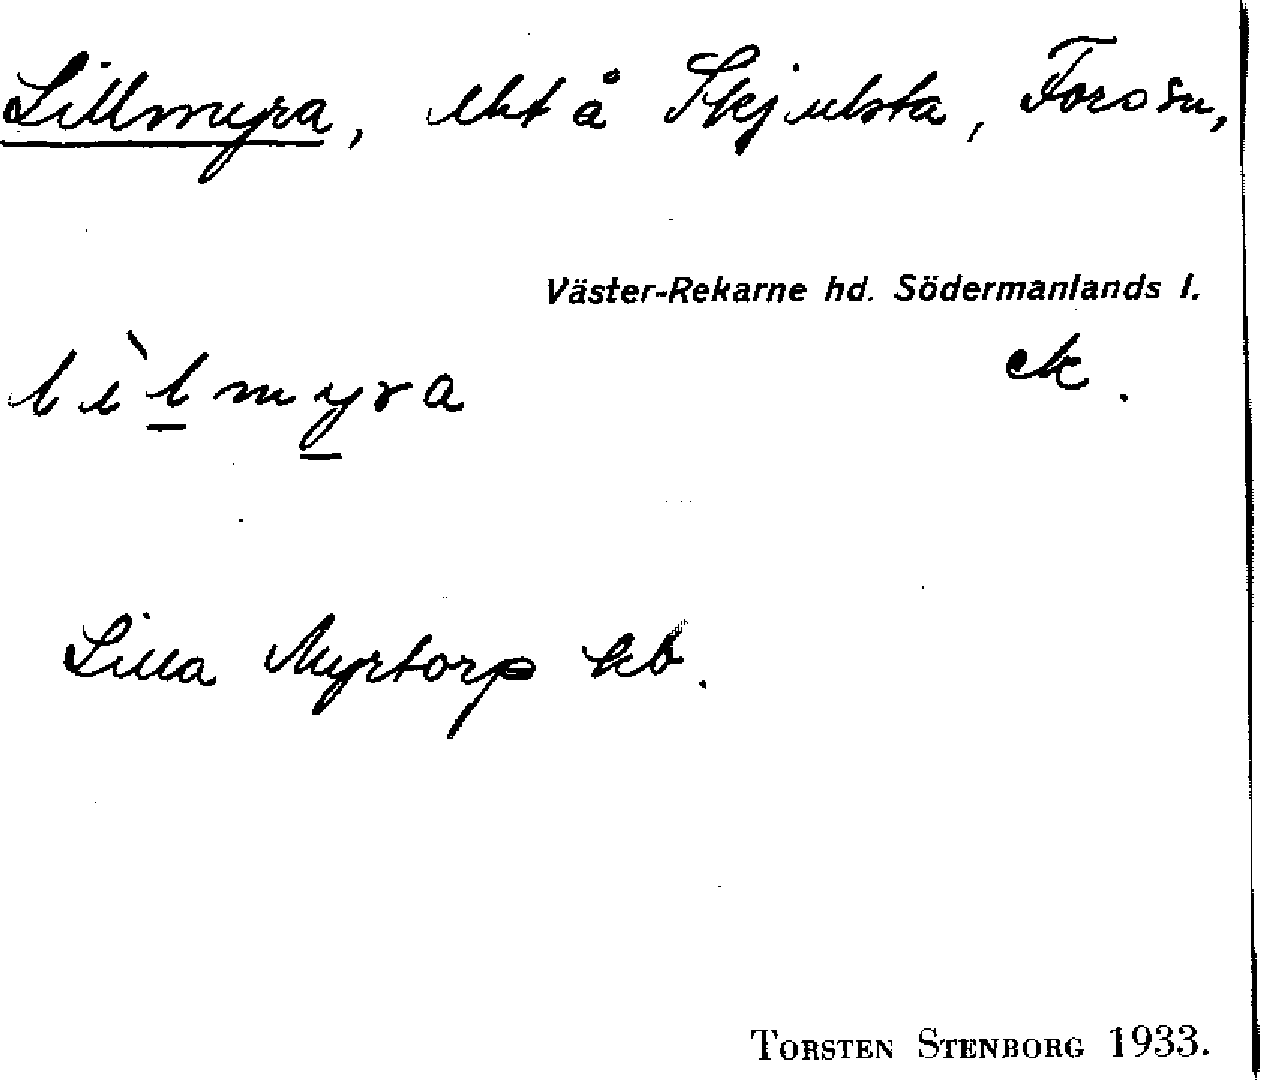 Lillmyra, lht å Skjulsta, Fors sn,
Väster-Rekarne hd. Södermanlands l.
lìlmyra
ek.
Lilla Myrtorp kb.
TORSTEN STENBORG 1933.